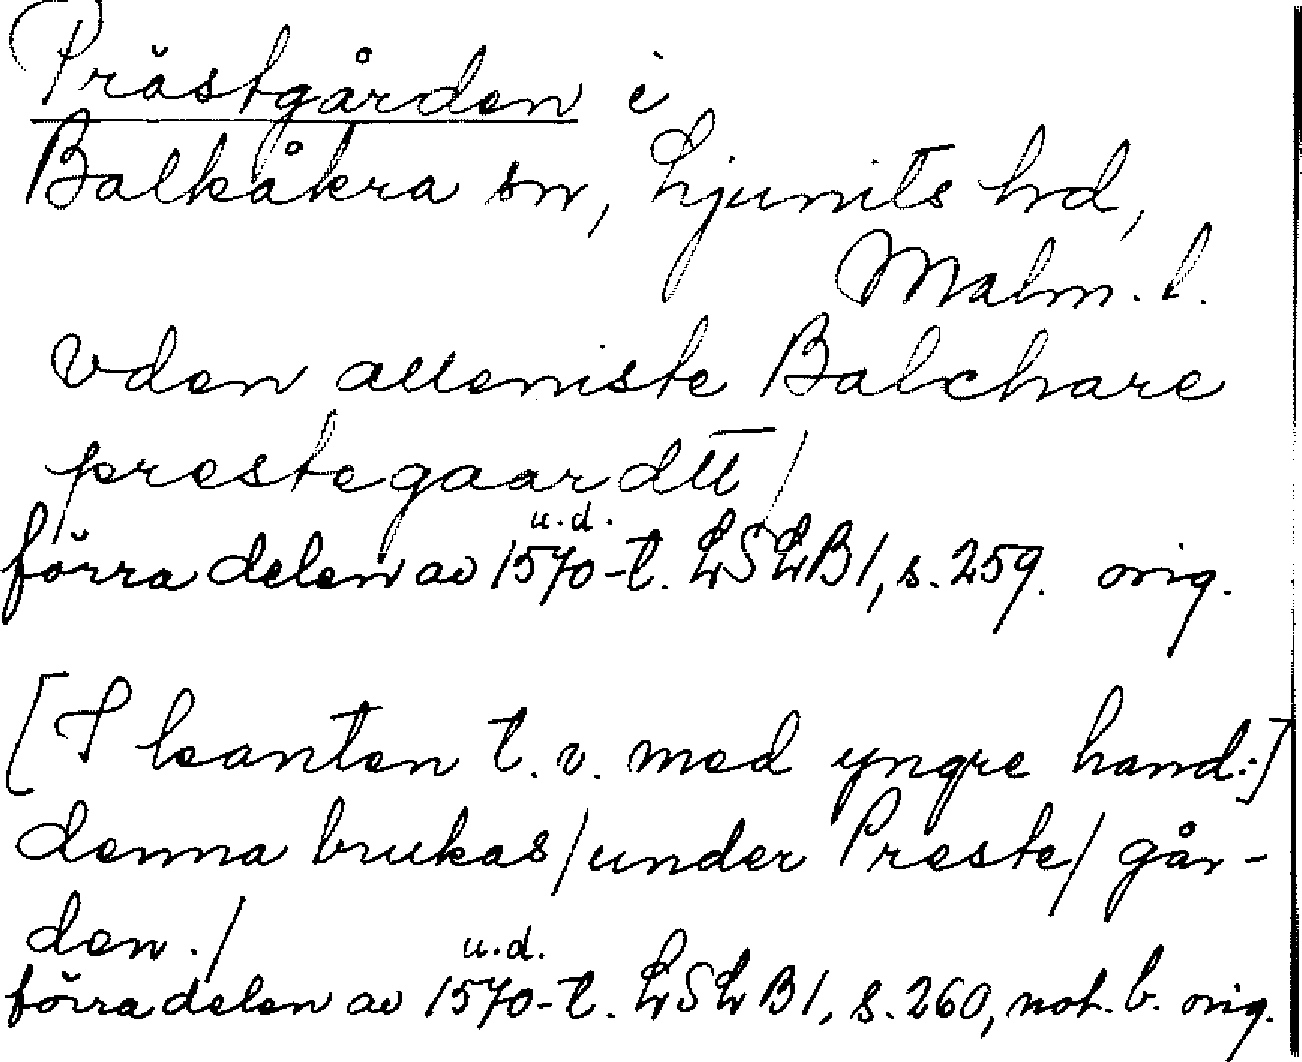 Prästgården i
Balkåkra sn, Ljunits hd,
Malm. l.
vden alleniste Balchare
prestegaardtt /
u.d.
förra delen av 1570-t. LSLB1, s. 259. orig.
[I kanten t.v. med yngre hand:]
denna brukas / under Preste / går-
den. /
u.d.
förra delen av 1570-t. LSLB1, s. 260, not. b. orig.